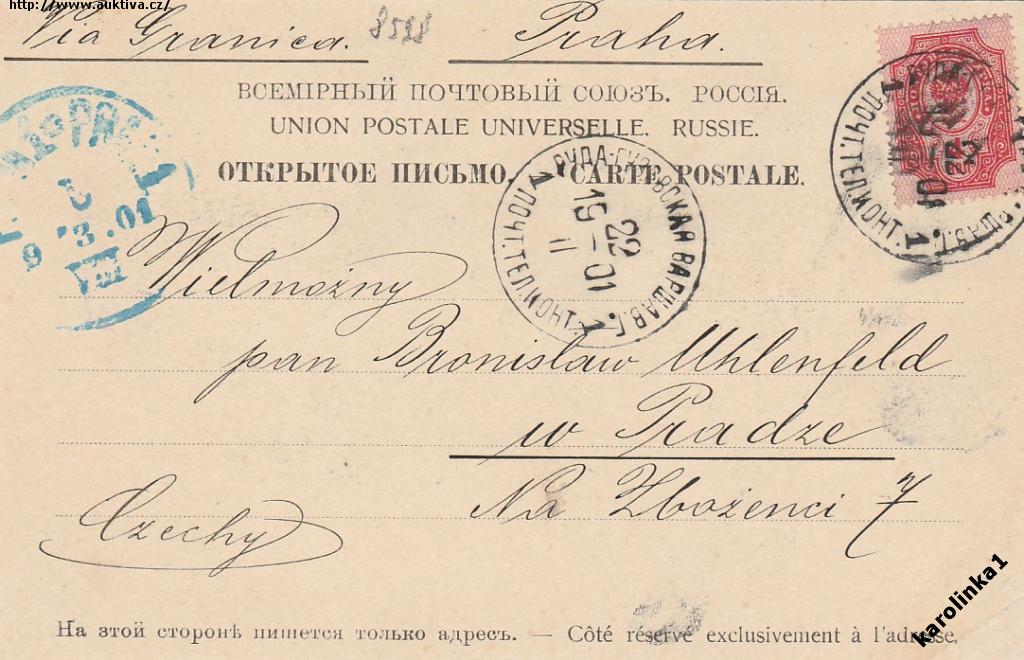 http://www.auktiva.cz/
Via Granica. 8598 Praha.
ВСЕМІРНЫЙ ПОЧТОВЫЙ СОЮЗЪ. РОССІЯ.
UNION POSTALE UNIVERSELLE. RUSSIE.
ОТКРЫТОЕ ПИСЬМО. CARTE POSTALE.
РУДА-ГУЗОВСКАЯ ВАРШАВ. Г.
1 ПОЧТ. ТЕЛ. КОНТ. 1
22 – 01
15 II
ПОЧТ. ТЕЛ. КОНТ. 1
9 3.01
VIII
Wielmożny
pan Bronisław Uhlenfeld
w Pradze
Na Zbożenci 7
Czechy
На этой сторонѣ пишется только адресъ. — Côté réservé exclusivement à l'adresse.
karolinka1